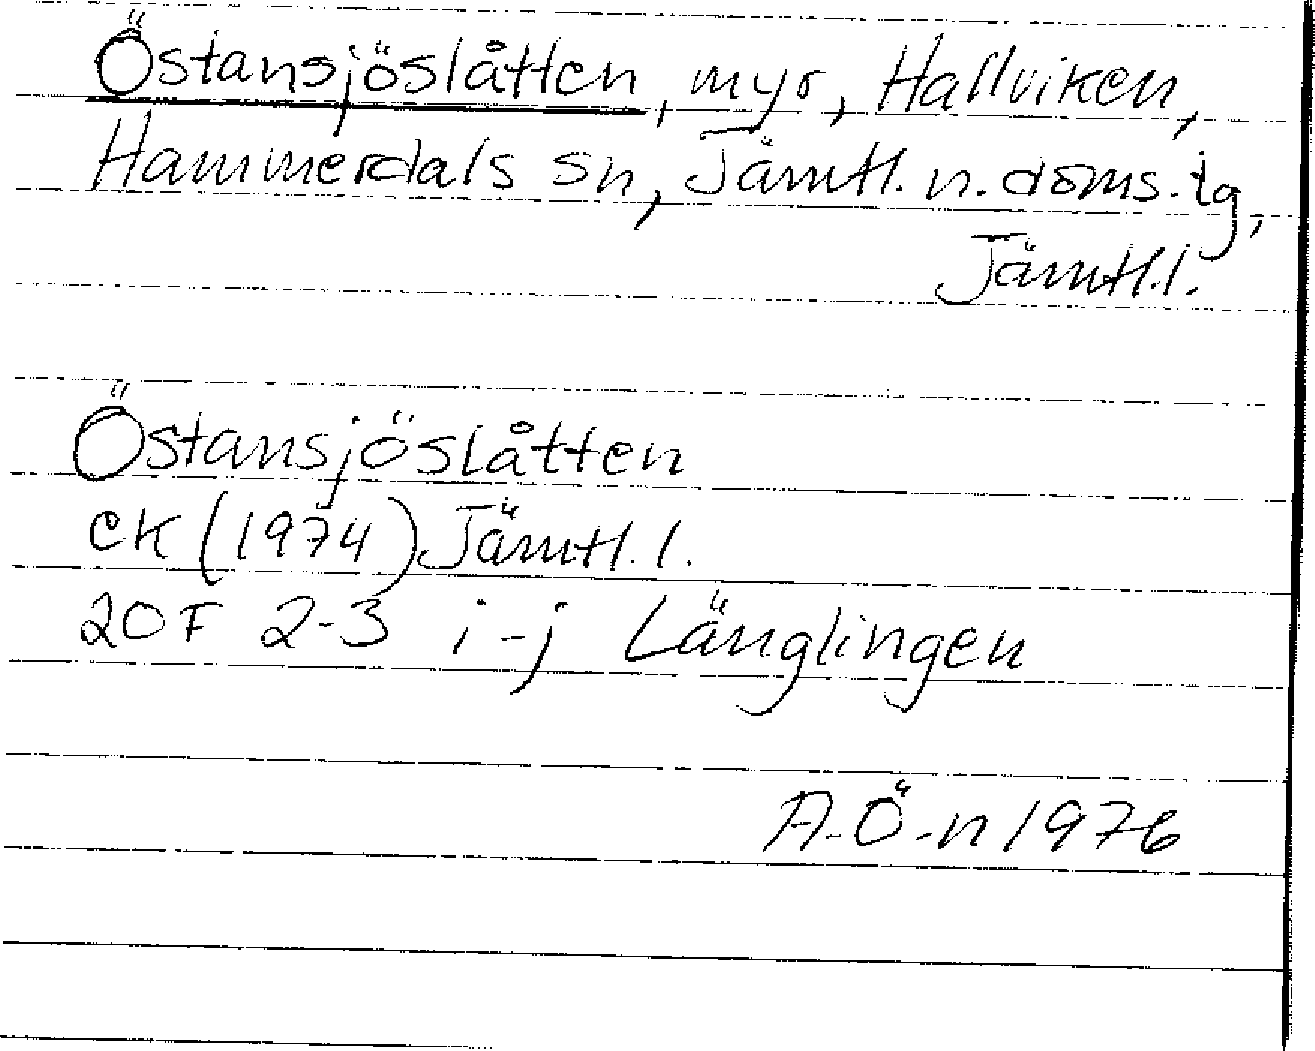 Östansjöslåtten, myr, Hallviken,
Hammerdals sn, Jämtl. n. doms. tg,
Jämtl.l.
Östansjöslåtten
EK (1974) Jämtl. l.
20F 2-3 i-j Länglingen
A-Ö-n 1976